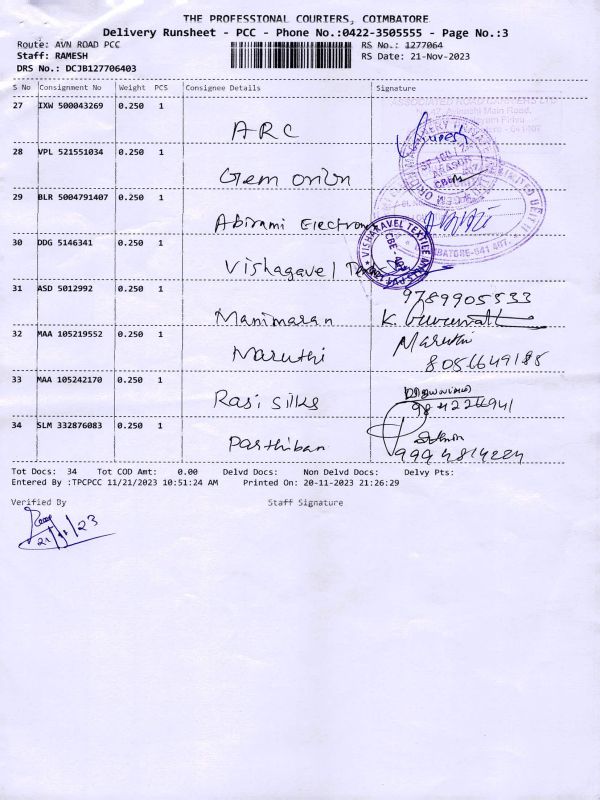 THE PROFESSIONAL COURIERS, COIMBATORE
Delivery Runsheet - PCC - Phone No.:0422-3505555 - Page No.:3
Route: AVN ROAD PCC RS No.: 1277064
Staff: RAMESH RS Date: 21-Nov-2023
DRS No.: DCJB127706403
S No Consignment No Weight PCS Consignee Details Signature
27 IXW 500043269 0.250 1
ARC
28 VPL 521551034 0.250 1
Gem orion
29 BLR 5004791407 0.250 1
Abirami Electron
30 DDG 5146341 0.250 1
Vishagavel
VISHAGAVEL TEXTILE MILLS
CBE
31 ASD 5012992 0.250 1 9789905533
Manimaran K.
32 MAA 105219552 0.250 1 Maruthi
Maruthi 8056649185
33 MAA 105242170 0.250 1
Rasi silks
34 SLM 332876083 0.250 1
Parthiban
Tot Docs: 34 Tot COD Amt: 0.00 Delvd Docs: Non Delvd Docs: Delvy Pts:
Entered By :TPCPCC 11/21/2023 10:51:24 AM Printed On: 20-11-2023 21:26:29
Verified By Staff Signature